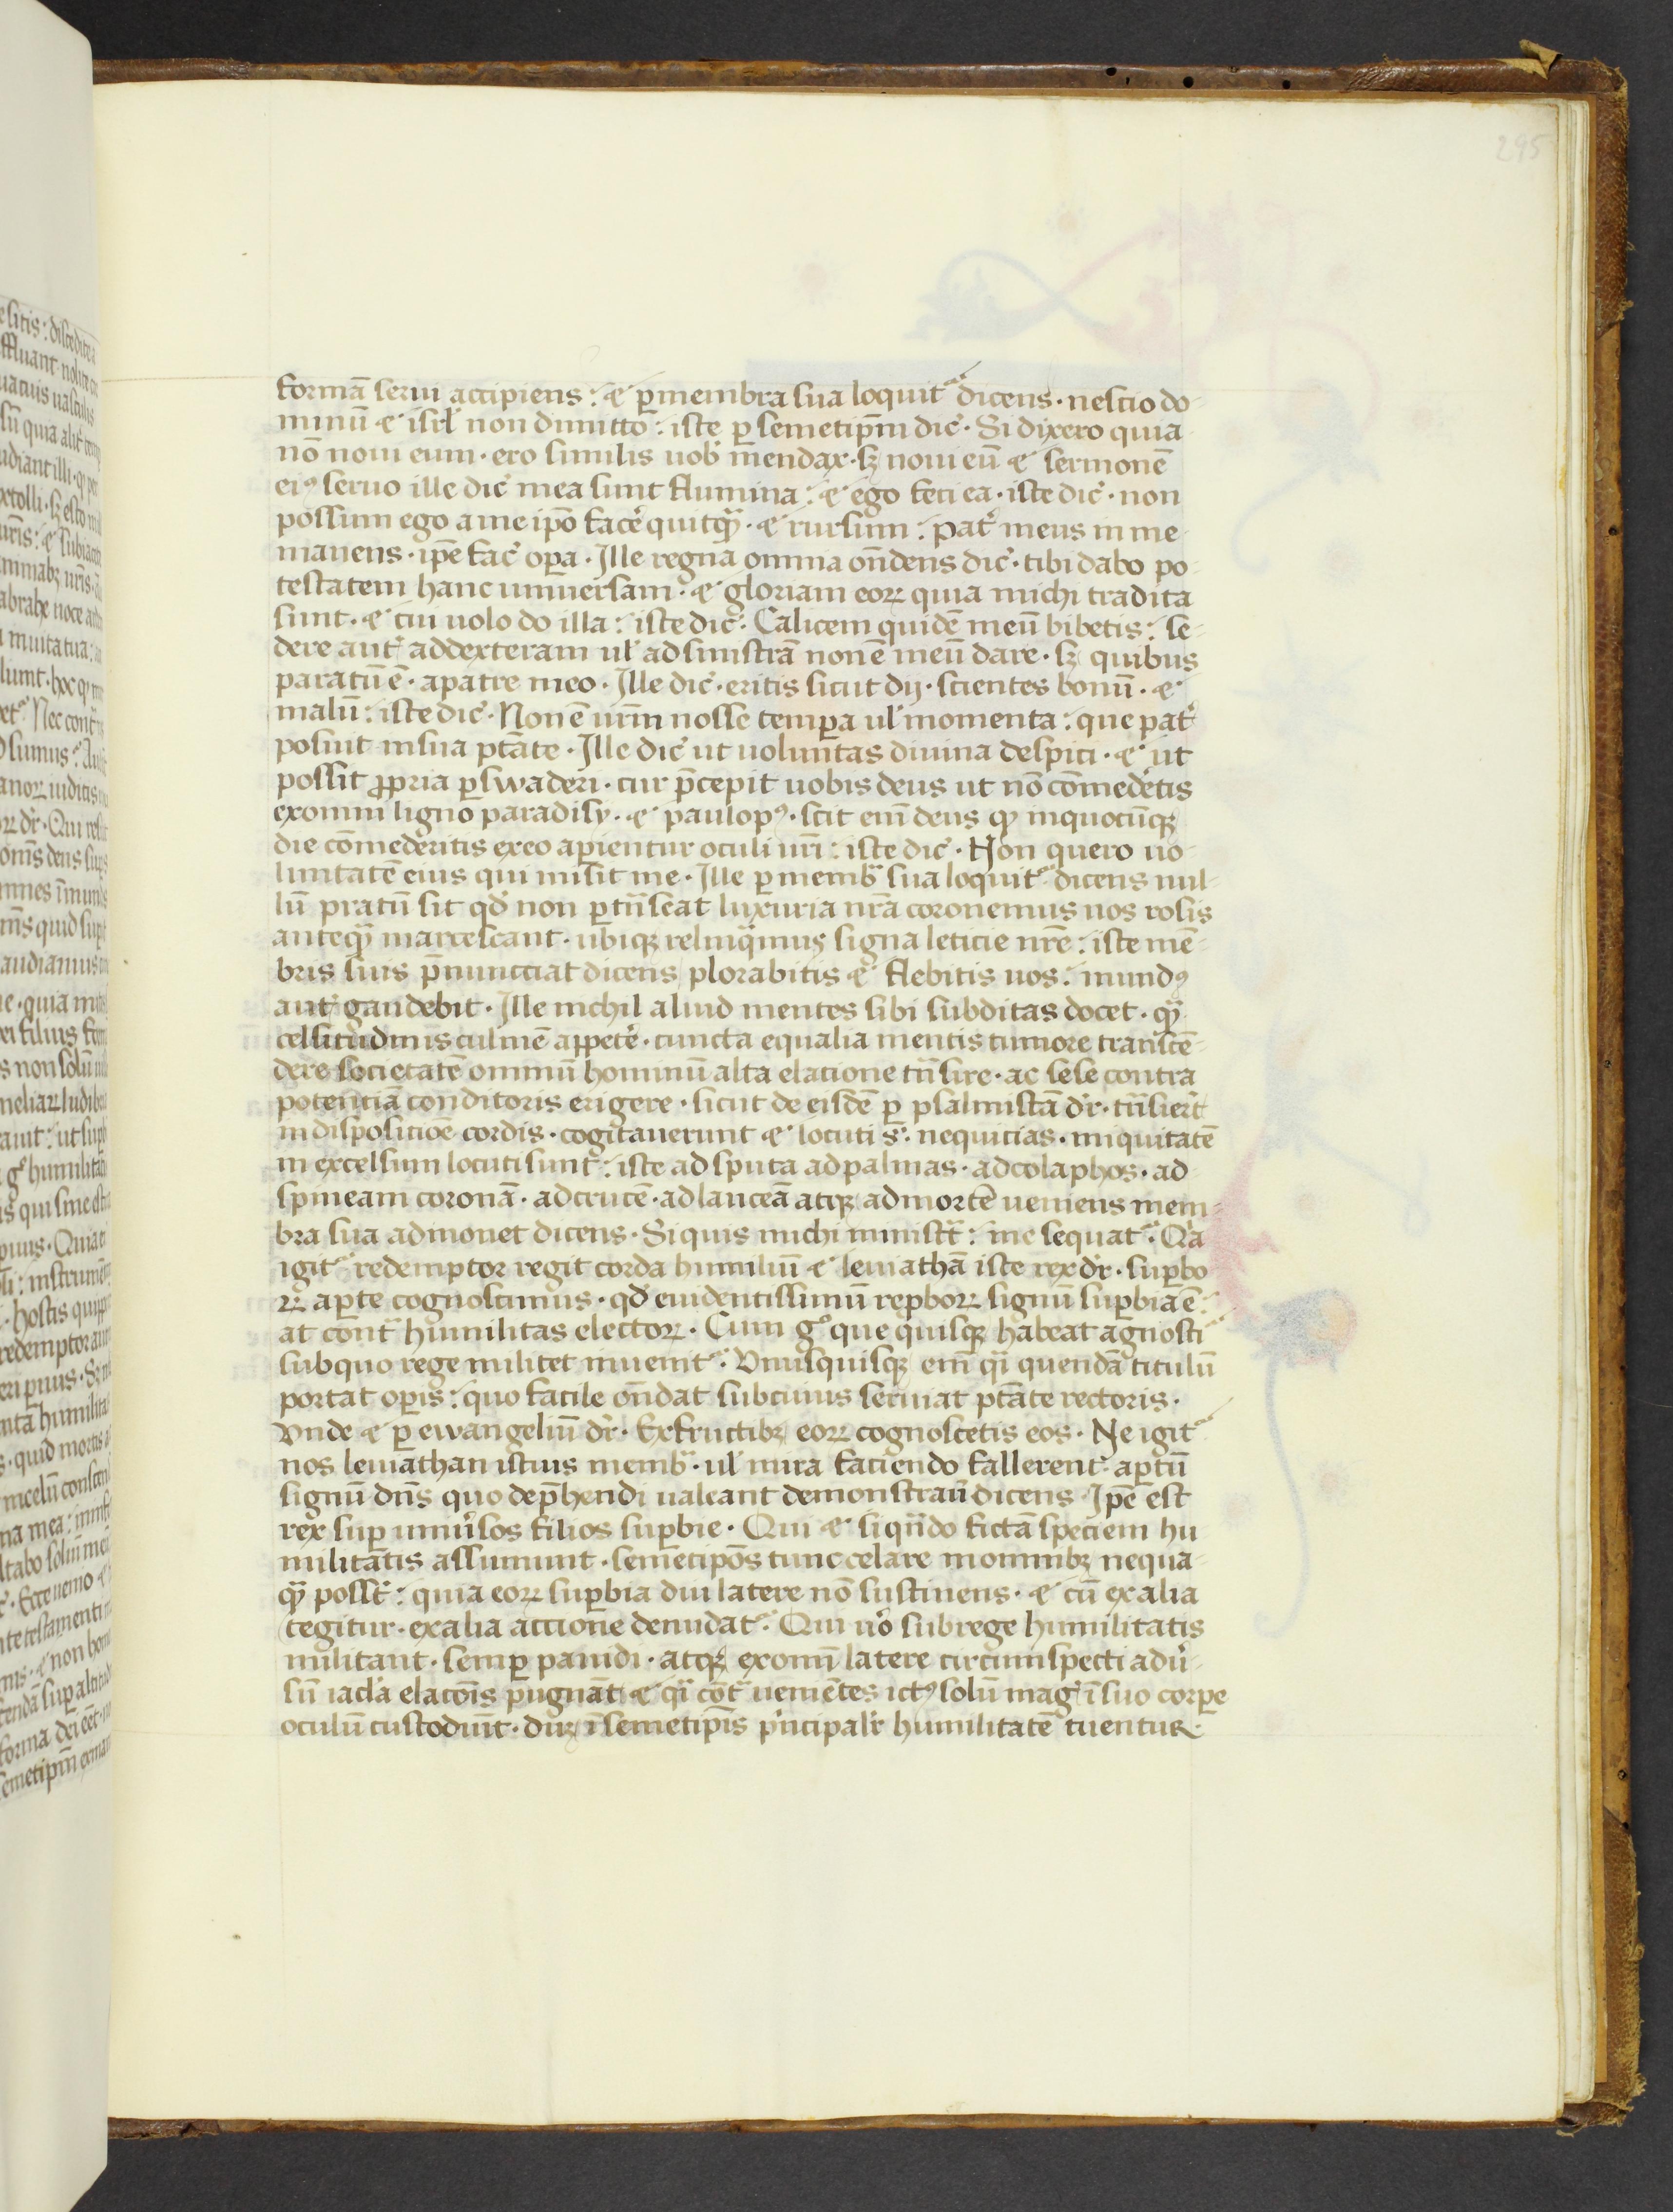 295
formā serui accipiens: ⁊ ꝑ membra sua loquit᷑ dicens · nescio do-
minū ⁊ isrl̓ non dimitto: iste ꝑ semetip̄m dic̄ · Si dixero quia
nō noui eum · ero similis uob̓ mendax · sꝫ noui eū ⁊ sermonē
eiꝰ seruo ille dic̄ mea sunt flumina: ⁊ ego feci ea · iste dic̄ · non
possum ego a me ip̄o facē quitqᷓ · ⁊ rursum: pat̓ meus in me
manens · ip̄e fac̄ oꝑa · Ille regna omnia on̄dens dic̄ · tibi dabo po-
testatem hanc uniuersam · ⁊ gloriam eoꝝ quia michi tradita
sunt · ⁊ cui uolo do illa: iste dic̄ · Calicem quidē meū bibetis: se-
dere aut̓ ad dexteram ul̓ ad sinistrā non ē meū dare · sꝫ quibus
paratū ē · a patre meo · Ille dic̄ · eritis sicut dij · scientes bonū · ⁊
malū: iste dic̄ · Non ē ur̄m nosse temꝑa ul̓ momenta: que pat̓
posuit in sua ptāte · Ille dic̄ ut uoluntas diuina despici · ⁊ ut
possit ꝓpria ꝑswaderi · cur p̄cepit uobis deus ut nō cōmedetis
ex omni ligno paradisy · ⁊ paulopꝰ · scit eni̅ deus ꝙ in quocūqꝫ
die cōmederitis ex eo aꝑientur oculi ur̄i: iste dic̄ · Non quero uo-
luntatē eius qui misit me · Ille ꝑ memb᷑ sua loquit᷑ dicens nul-
lū pratū sit qd̓ non ꝑtn̄seat luxuria nr̄a coronemus nos rosis
anteqᷓ marcescant · ubiqꝫ relinqᷓmus signa leticie nr̄e: iste mē-
bris suis p̄nuncciat dicens plorabitis ⁊ flebitis uos: mundꝰ
aut̓ gaudebit · Ille nichil aliud mentes sibi subditas docet · qᷓ
celsitudinis culmē appetē · cuncta equalia mentis tumore transcē-
dere societatē omniū hominū alta elacione tn̄sire · ac sese contra
potentiā conditoris erigere · sicut de eisdē ꝑ psalmistā dr̄ · tn̄sier̄t
in dispositiōe cordis · cogitauerunt ⁊ locuti s̄ · nequicias · iniquitatē
in excelsum locuti sunt: iste ad sputa ad palmas · ad colaphos · ad
spineam coronā · ad crucē · ad lanceā atqꝫ ad mortē ueniens mem-
bra sua admonet dicens · Si quis michi minist᷑t: me sequat᷑ · Qᷓa
igit᷑ redemptor regit corda humiliū ⁊ leuiathā iste rex dr̄ · suꝑbo
ꝝ aꝑte cognoscimus · qd̓ euidentissimū reꝓboꝝ signū suꝑbia ē:
at cont᷑ humilitas electoꝝ · Cum gͦ que quisqꝫ habeat agnosci᷑
sub quo rege militet inuenit᷑ · Vnusquisqꝫ eni̅ qᷓi quendā titulū
portat oꝑis: quo facile on̄dat sub cuius seruiat ptāte rectoris ·
Vnde ⁊ ꝑ ewangeliū dr̄ · Ex fructibꝫ eoꝝ cognoscetis eos · Ne igit᷑
nos leuiathan istius memb᷑ · ul̓ mira faciendo fallerent aꝑtū
signū dn̄s quo dep̄hendi ualeant demonstrau̓ dicens · Ip̄e est
rex suꝑ uniu̓sos filios suꝑbie · Qui ⁊ si qn̄do fictā speciem hu
militatis assumunt · semetip̄os tunc celare in omnibꝫ nequa-
qᷓ poss̄t: quia eoꝝ suꝑbia diu latere nō sustinens · ⁊ cū ex alia
tegitur · ex alia accione denudat᷑ · Qui uͦo sub rege humilitatis
militant · semꝑ pauidi · atqꝫ ex omi̅ latere circumspecti adu̓-
sū iacl̓a elacōis pugnāt ⁊ qᷓi cōt᷑ uenīetes ictꝰ solū mag̓ ī suo corꝑe
oculū custodiūt · dūꝫ ī semetip̄is p̓ncipalr̓ humilitatē tuentur ·